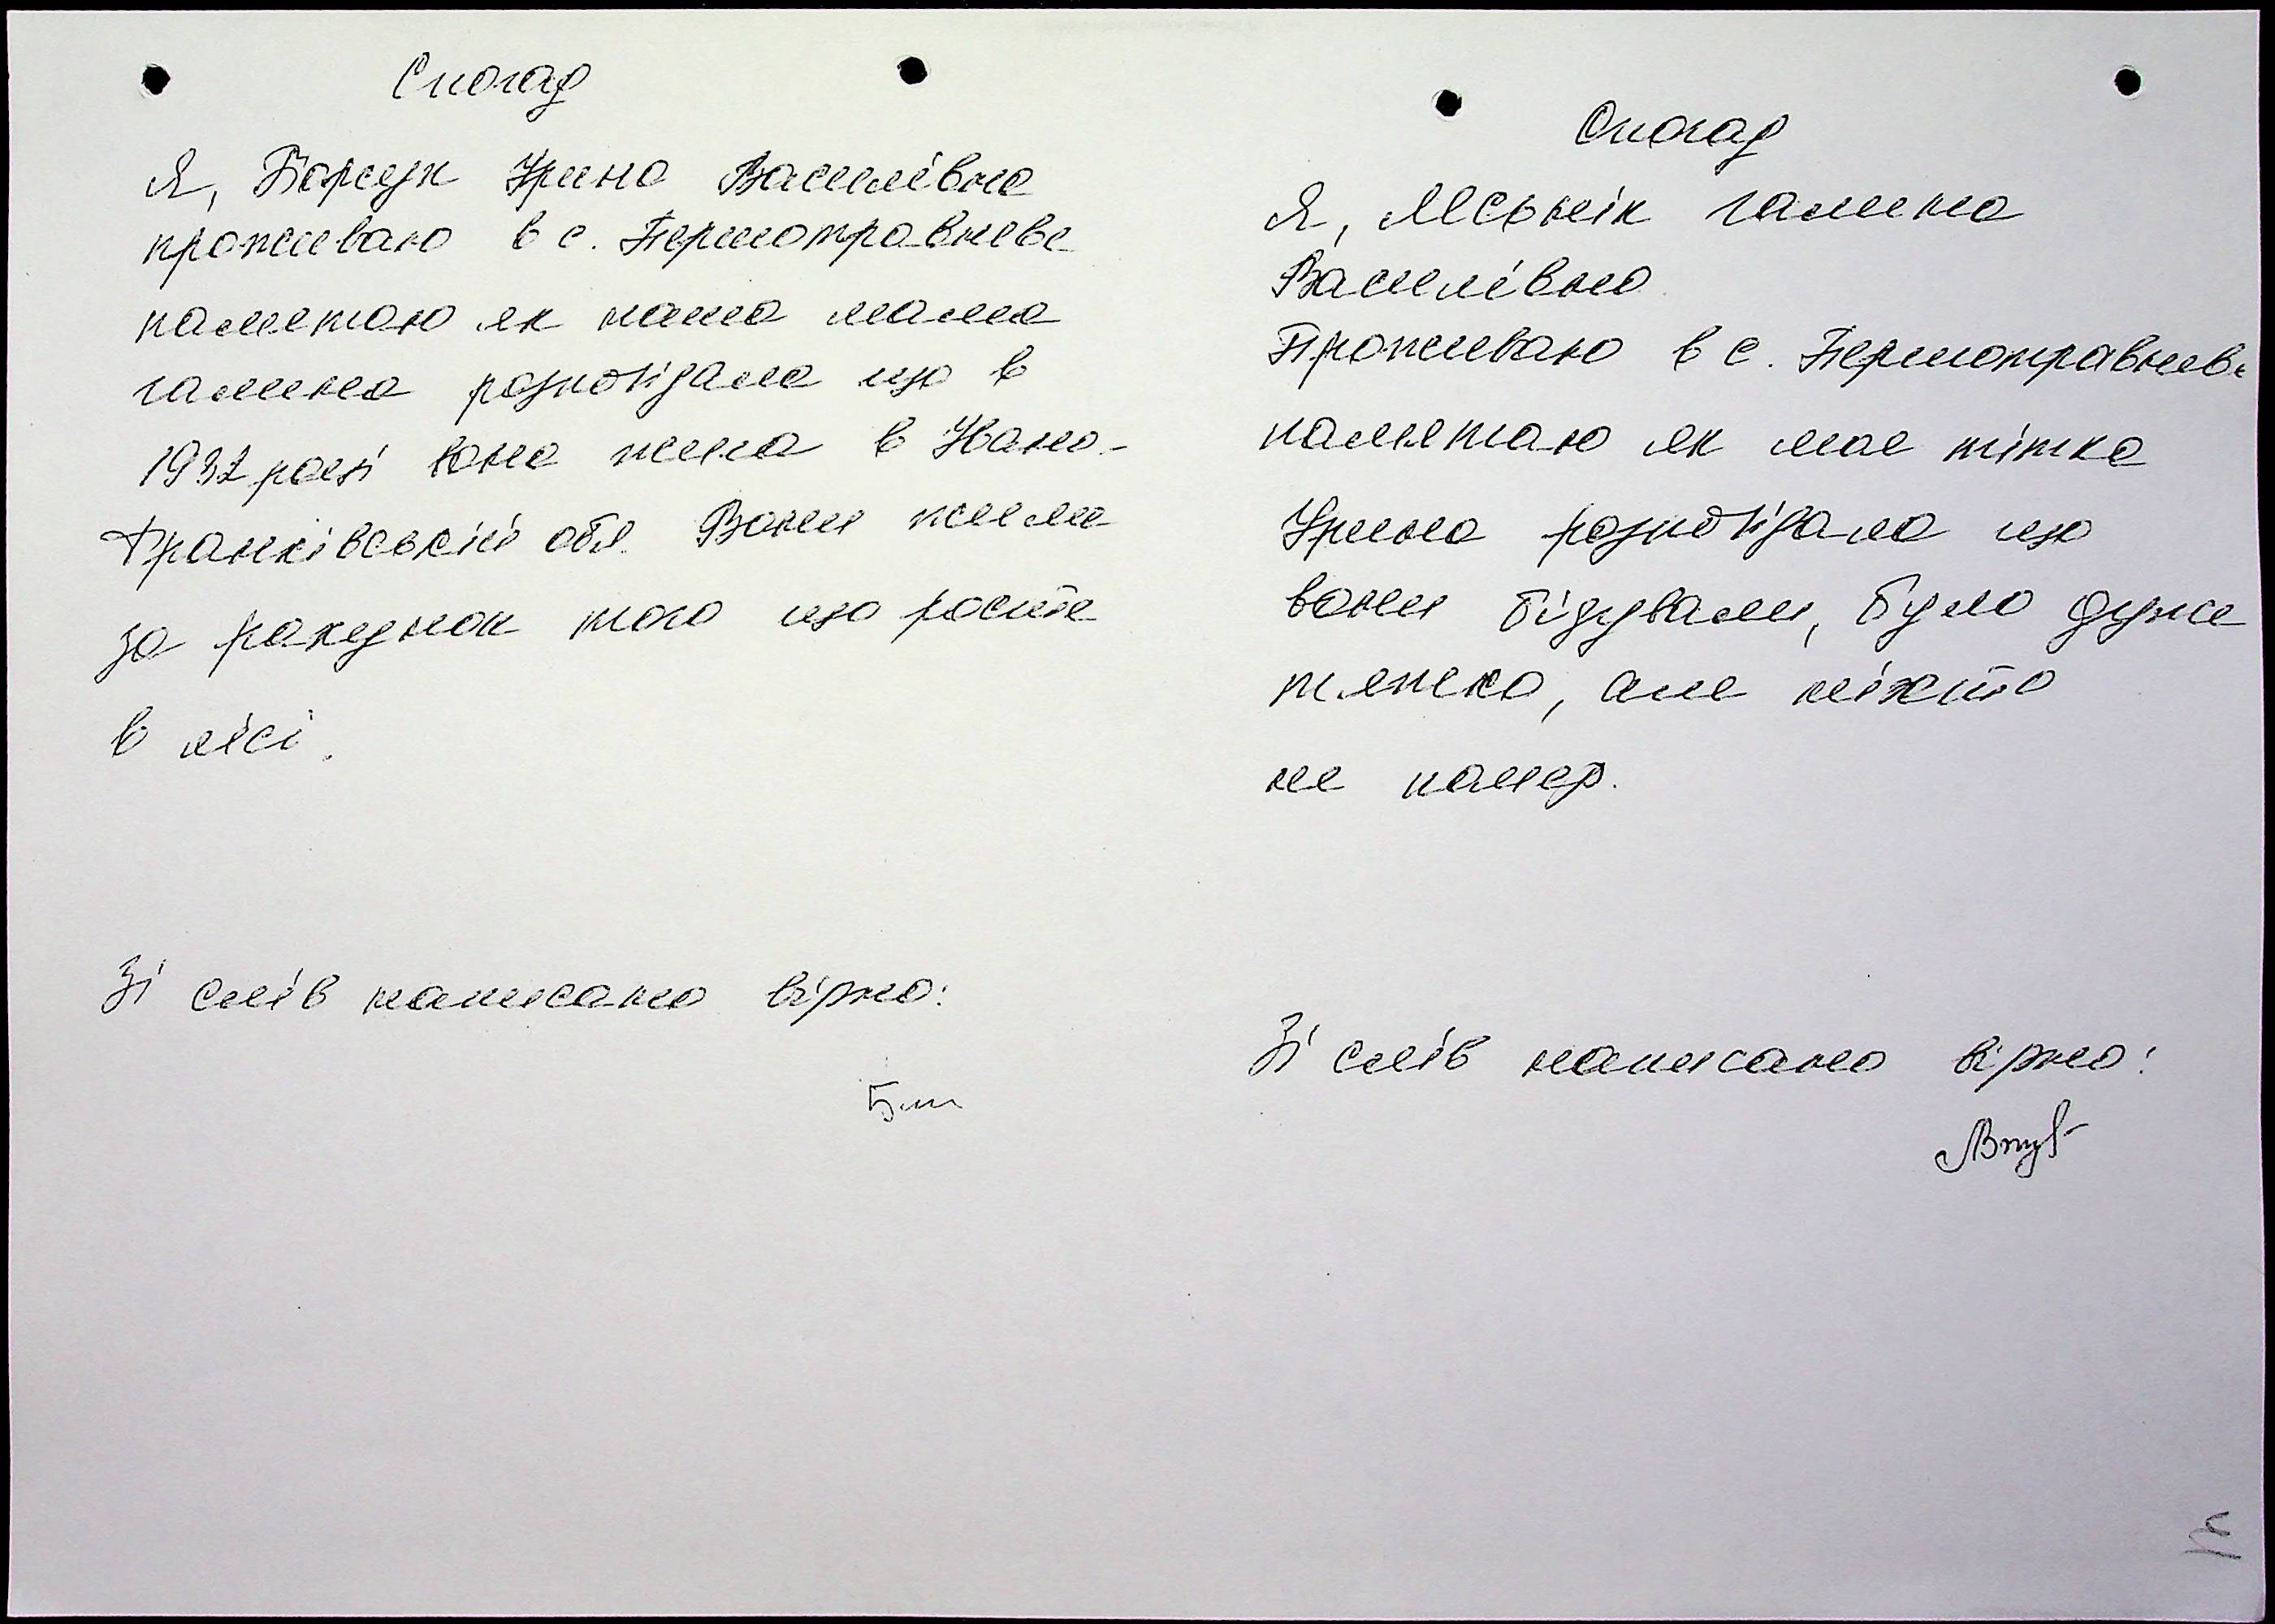 Спогад
Я, Борсук Ірина Василівна
проживаю в с. Першотравневе
памятаю як мама
галина розповідала що в
1932 році вона жила в Івано-
Франківській обл. Вони жили
за рахунок того що росте
в лісі.
Зі слів написано вірно:
Спогад
Я, галина
Василівна
Проживаю в с. Першотравневе
памятаю як моя тітка
Ірина розповідала що
вони бідували, було дуже
тяжко, але ніхто
не помер.
Зі слів написано вірно: